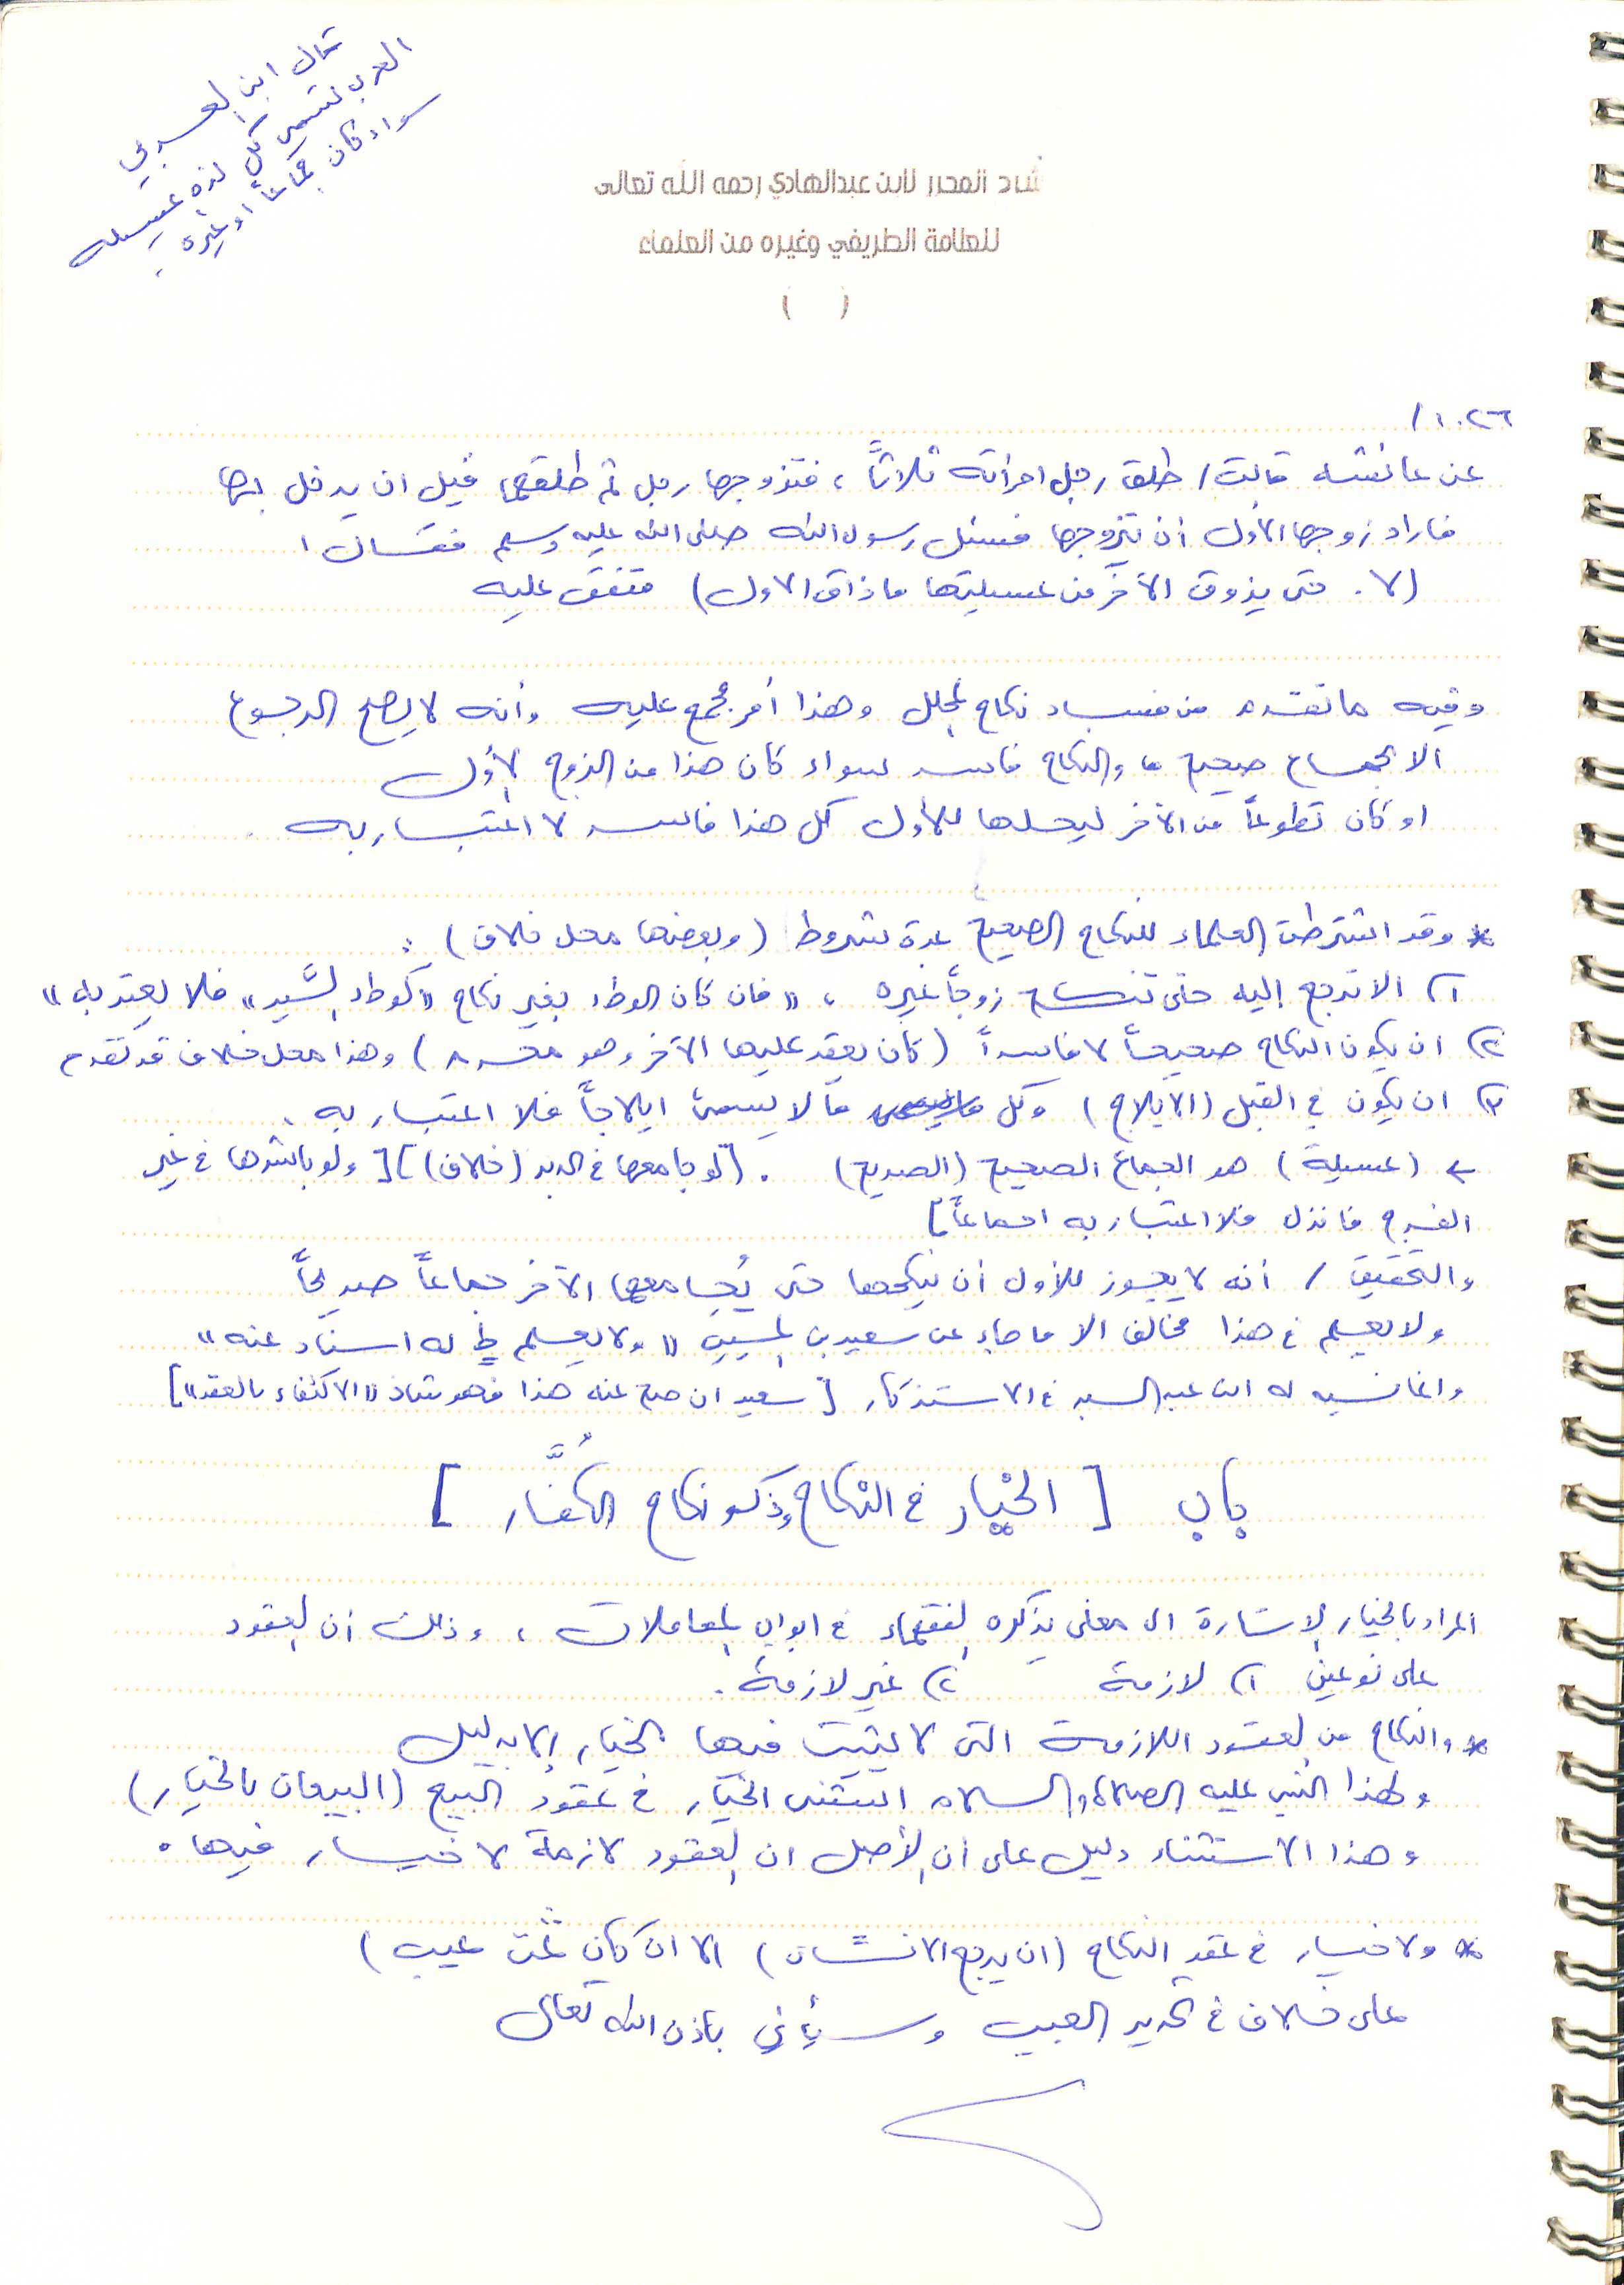 قال ابن العربي
العرب تسمي كل لذة عسيله
سواء كان جماعاً او غيره .
شرح المحرر لابن عبدالهادي رحمه الله تعالى
للعلامة الطريفي وغيره من العلماء
( )
١٠٢٦/
عن عائشه قالت / طلق رجل امرأته ثلاثاً ، فتزوجها رجل ثم طلقها قبل ان يدخل بها
فاراد زوجها الأول أن يتزوجها فسئل رسول الله صلى الله عليه وسلم فقال
(لا . حتى يذوق الآخر من عسيلتها ما ذاق الاول) متفق عليه
وفيه ما تقدم من فساد نكاح المحلل وهذا أمر مجمع عليه وأنه لا يصح الرجوع
الا بجماع صحيح والنكاح فاسد سواء كان هذا من الزوج الأول
او كان تطوعاً من الآخر ليحلها للأول كل هذا فاسد لا اعتبار به .
* وقد اشترطت العلماء للنكاح الصحيح عدة شروط (وبعضها محل خلاف) :
١) الا ترجع إليه حتى تنكح زوجاً غيره ، "فان كان الوطء بغير نكاح "كوطء السيد" فلا يعتد به"
٢) ان يكون النكاح صحيحاً لا فاسداً (كان يعقد عليها الآخر وهو محرم) وهذا محل خلاف قد تقدم
٣) ان يكون في القبل (الايلاج) وكل ما لا يسمى ايلاجاً فلا اعتبار به .
← (عسيلة) هو الجماع الصحيح (الصريح) . [لو جامعها في الدبر (خلاف)] [ولو باشرها في غير
الفرج فانزل فلا اعتبار به اجماعاً]
والتحقيق / أنه لا يجوز للأول أن ينكحها حتى يُجامعها الآخر جماعاً صريحاً
ولا يعلم في هذا مخالف الا ما جاء عن سعيد بن المسيب "ولا يعلم له اسناد عنه"
وانما نسبه له ابن عبد البر في الاستذكار [سعيد ان صح عنه هذا فهو شاذ "الاكتفاء بالعقد"]
باب [ الخيار في النكاح وذكر نكاح الكُفَّار ]
المراد بالخيار الإشارة الى معنى يذكره الفقهاء في ابواب المعاملات ، وذلك أن العقود
على نوعين ١) لازمة ٢) غير لازمة .
* والنكاح من العقود اللازمة التى لا يثبت فيها الخيار إلا بدليل
ولهذا النبي عليه الصلاة والسلام استثنى الخيار في عقود البيع (البيعان بالخيار)
وهذا الاستثناء دليل على أن الأصل ان العقود لازمة لا خيار فيها .
* ولا خيار في عقد النكاح (ان يرجع الانسان) الا ان كان ثمت عيب)
على خلاف في تحديد العيب وسيأتي بإذن الله تعالى